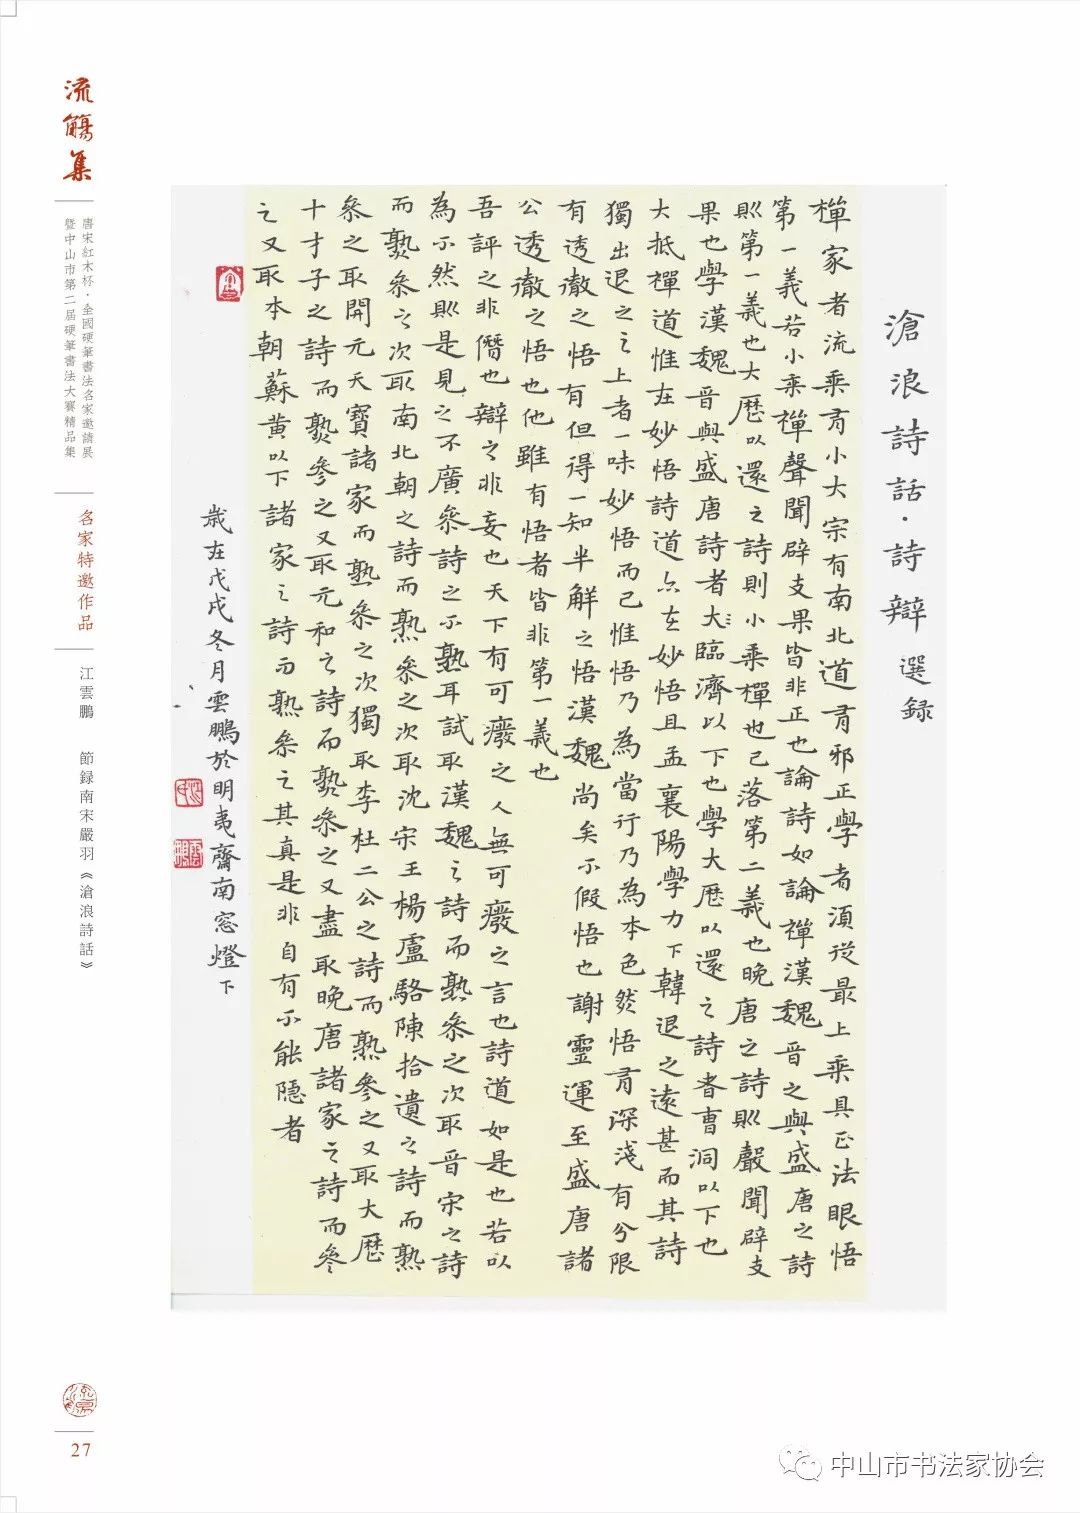 流觴集
唐宋紅木杯·全國硬筆書法名家邀請展
暨中山市第二屆硬筆書法大賽精品集
名家特邀作品
江雲鵬 節録南宋嚴羽《滄浪詩話》
滄浪詩話·詩辯 選録
禪家者流乘有小大宗有南北道有邪正學者須從最上乘具正法眼悟
第一義若小乘禪聲聞辟支果皆非正也論詩如論禪漢魏晋之與盛唐之詩
則第一義也大歷以還之詩則小乘禪也已落第二義也晚唐之詩則聲聞辟支
果也學漢魏晋與盛唐詩者大臨濟以下也學大歷以還之詩者曹洞以下也
大抵禪道惟在妙悟詩道亦在妙悟且孟襄陽學力下韓退之遠甚而其詩
獨出退之之上者一味妙悟而已惟悟乃為當行乃為本色然悟有深淺有分限
有透徹之悟有但得一知半解之悟漢魏尚矣不假悟也謝靈運至盛唐諸
公透徹之悟也他雖有悟者皆非第一義也
吾評之非僭也辯之非妄也天下有可廢之人無可廢之言也詩道如是也若以
為不然則是見之不廣參詩之不熟耳試取漢魏之詩而熟參之次取晋宋之詩
而熟參之次取南北朝之詩而熟參之次取沈宋王楊盧駱陳拾遺之詩而熟
參之取開元天寶諸家而熟參之次獨取李杜二公之詩而熟參之又取大歷
十才子之詩而熟參之又取元和之詩而熟參之又盡取晚唐諸家之詩而參
之又取本朝蘇黄以下諸家之詩而熟參之其真是非自有不能隱者
歲在戊戌冬月雲鵬於明夷齋南窓燈下
27
中山市书法家协会